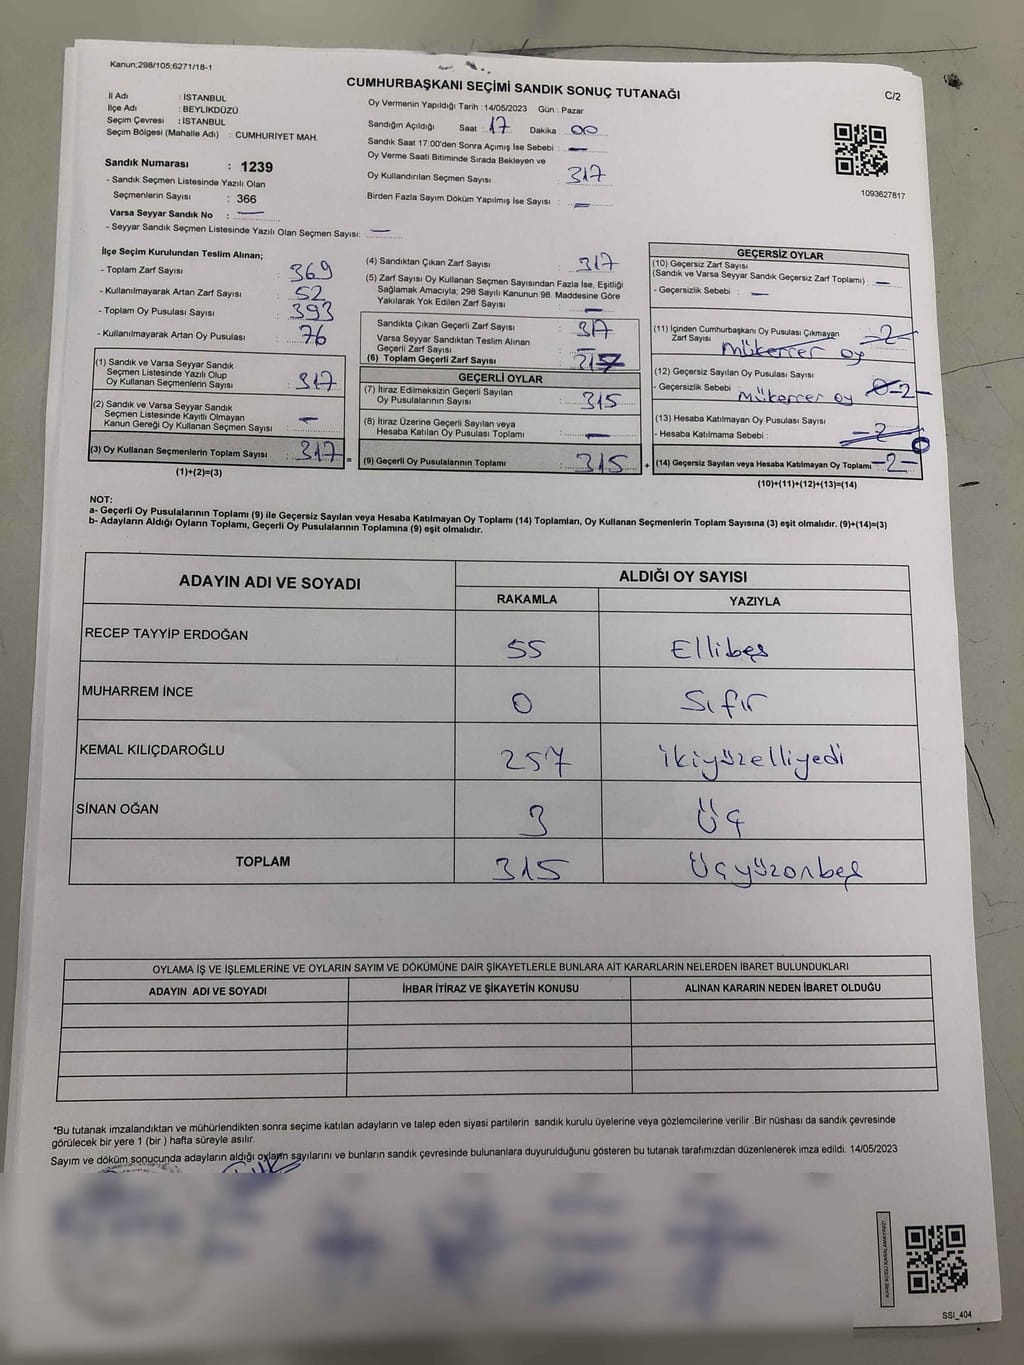 Kanun;298/105;6271/18-1
CUMHURBAŞKANI SEÇİMİ SANDIK SONUÇ TUTANAĞI
C/2
İl Adı : İSTANBUL
İlçe Adı : BEYLİKDÜZÜ
Seçim Çevresi : İSTANBUL
Seçim Bölgesi (Mahalle Adı) : CUMHURİYET MAH.
Sandık Numarası : 1239
- Sandık Seçmen Listesinde Yazılı Olan
Seçmenlerin Sayısı : 366
Varsa Seyyar Sandık No : —
- Seyyar Sandık Seçmen Listesinde Yazılı Olan Seçmen Sayısı: —
Oy Vermenin Yapıldığı Tarih :14/05/2023 Gün : Pazar
Sandığın Açıldığı Saat : 17 Dakika : 00
Sandık Saat 17:00'den Sonra Açımış İse Sebebi : —
Oy Verme Saati Bitiminde Sırada Bekleyen ve
Oy Kullandırılan Seçmen Sayısı : 317
Birden Fazla Sayım Döküm Yapılmış İse Sayısı : —
1093627817
İlçe Seçim Kurulundan Teslim Alınan;
- Toplam Zarf Sayısı : 369
- Kullanılmayarak Artan Zarf Sayısı : 52
- Toplam Oy Pusulası Sayısı : 393
- Kullanılmayarak Artan Oy Pusulası : 76
(1) Sandık ve Varsa Seyyar Sandık
Seçmen Listesinde Yazılı Olup
Oy Kullanan Seçmenlerin Sayısı : 317
(2) Sandık ve Varsa Seyyar Sandık
Seçmen Listesinde Kayıtlı Olmayan
Kanun Gereği Oy Kullanan Seçmen Sayısı : —
(3) Oy Kullanan Seçmenlerin Toplam Sayısı : 317
(1)+(2)=(3)
(4) Sandıktan Çıkan Zarf Sayısı : 317
(5) Zarf Sayısı Oy Kullanan Seçmen Sayısından Fazla İse, Eşitliği
Sağlamak Amacıyla; 298 Sayılı Kanunun 98. Maddesine Göre
Yakılarak Yok Edilen Zarf Sayısı : —
Sandıkta Çıkan Geçerli Zarf Sayısı : 317
Varsa Seyyar Sandıktan Teslim Alınan
Geçerli Zarf Sayısı : —
(6) Toplam Geçerli Zarf Sayısı : 317
GEÇERLİ OYLAR
(7) İtiraz Edilmeksizin Geçerli Sayılan
Oy Pusulalarının Sayısı : 315
(8) İtiraz Üzerine Geçerli Sayılan veya
Hesaba Katılan Oy Pusulası Toplamı : —
(9) Geçerli Oy Pusulalarının Toplamı : 315
GEÇERSİZ OYLAR
(10) Geçersiz Zarf Sayısı
(Sandık ve Varsa Seyyar Sandık Geçersiz Zarf Toplamı) : —
- Geçersizlik Sebebi : —
(11) İçinden Cumhurbaşkanı Oy Pusulası Çıkmayan
Zarf Sayısı : 2
mükerrer oy
(12) Geçersiz Sayılan Oy Pusulası Sayısı
- Geçersizlik Sebebi : mükerrer oy 0-2-
(13) Hesaba Katılmayan Oy Pusulası Sayısı
- Hesaba Katılmama Sebebi : -2- 0
(14) Geçersiz Sayılan veya Hesaba Katılmayan Oy Toplamı -2-
(10)+(11)+(12)+(13)=(14)
NOT:
a- Geçerli Oy Pusulalarının Toplamı (9) ile Geçersiz Sayılan veya Hesaba Katılmayan Oy Toplamı (14) Toplamları, Oy Kullanan Seçmenlerin Toplam Sayısına (3) eşit olmalıdır. (9)+(14)=(3)
b- Adayların Aldığı Oyların Toplamı, Geçerli Oy Pusulalarının Toplamına (9) eşit olmalıdır.
ADAYIN ADI VE SOYADI
ALDIĞI OY SAYISI
RAKAMLA YAZIYLA
RECEP TAYYİP ERDOĞAN 55 Ellibeş
MUHARREM İNCE 0 Sıfır
KEMAL KILIÇDAROĞLU 257 ikiyüzelliyedi
SİNAN OĞAN 3 Üç
TOPLAM 315 Üçyüzonbeş
OYLAMA İŞ VE İŞLEMLERİNE VE OYLARIN SAYIM VE DÖKÜMÜNE DAİR ŞİKAYETLERLE BUNLARA AİT KARARLARIN NELERDEN İBARET BULUNDUKLARI
ADAYIN ADI VE SOYADI İHBAR İTİRAZ VE ŞİKAYETİN KONUSU ALINAN KARARIN NEDEN İBARET OLDUĞU
*Bu tutanak imzalandıktan ve mühürlendikten sonra seçime katılan adayların ve talep eden siyasi partilerin sandık kurulu üyelerine veya gözlemcilerine verilir. Bir nüshası da sandık çevresinde
görülecek bir yere 1 (bir ) hafta süreyle asılır.
Sayım ve döküm sonucunda adayların aldığı oyların sayılarını ve bunların sandık çevresinde bulunanlara duyurulduğunu gösteren bu tutanak tarafımızdan düzenlenerek imza edildi. 14/05/2023
KARE KODU KARALAMAYINIZ!
SSI_404